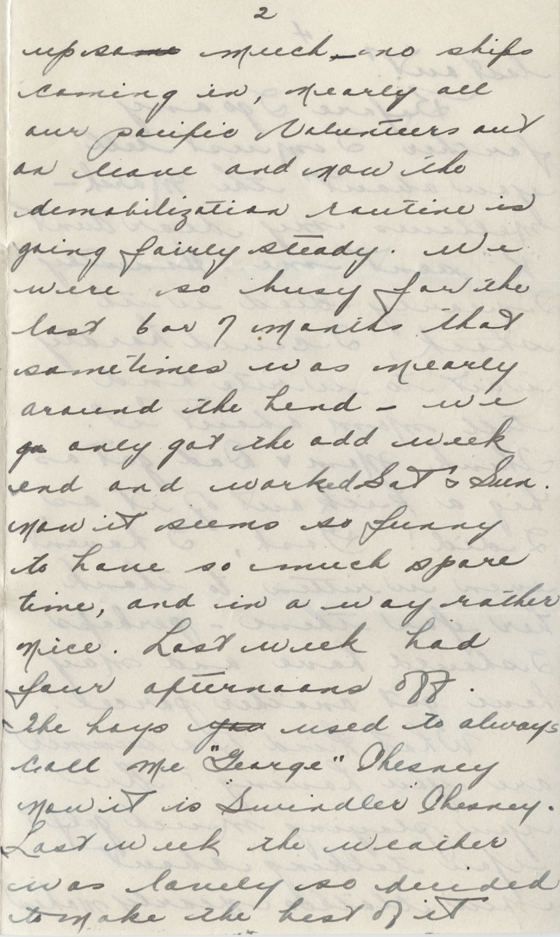 2
up so much - no ships
coming in, nearly all
our pacific Volunteers out
on leave and now the
demobilization routine is
going fairly steady. We
were so busy for the
last 6 or 7 months that
sometimes was nearly
around the bend - we
only got the odd week
end and worked Sat & Sun.
now it seems so funny
to have so much spare
time, and in a way rather
nice. Last week had
four afternoons off.
The boys you used to always
call me "George" Chesney
now it is Swindler Chesney.
Last week the weather
was lovely so decided
to make the best of it